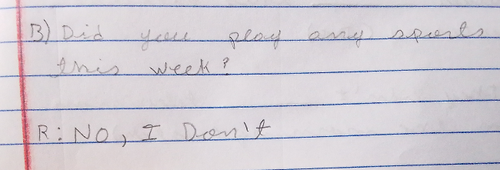 B) Did you play any sports
this week?
R: NO, I Don't